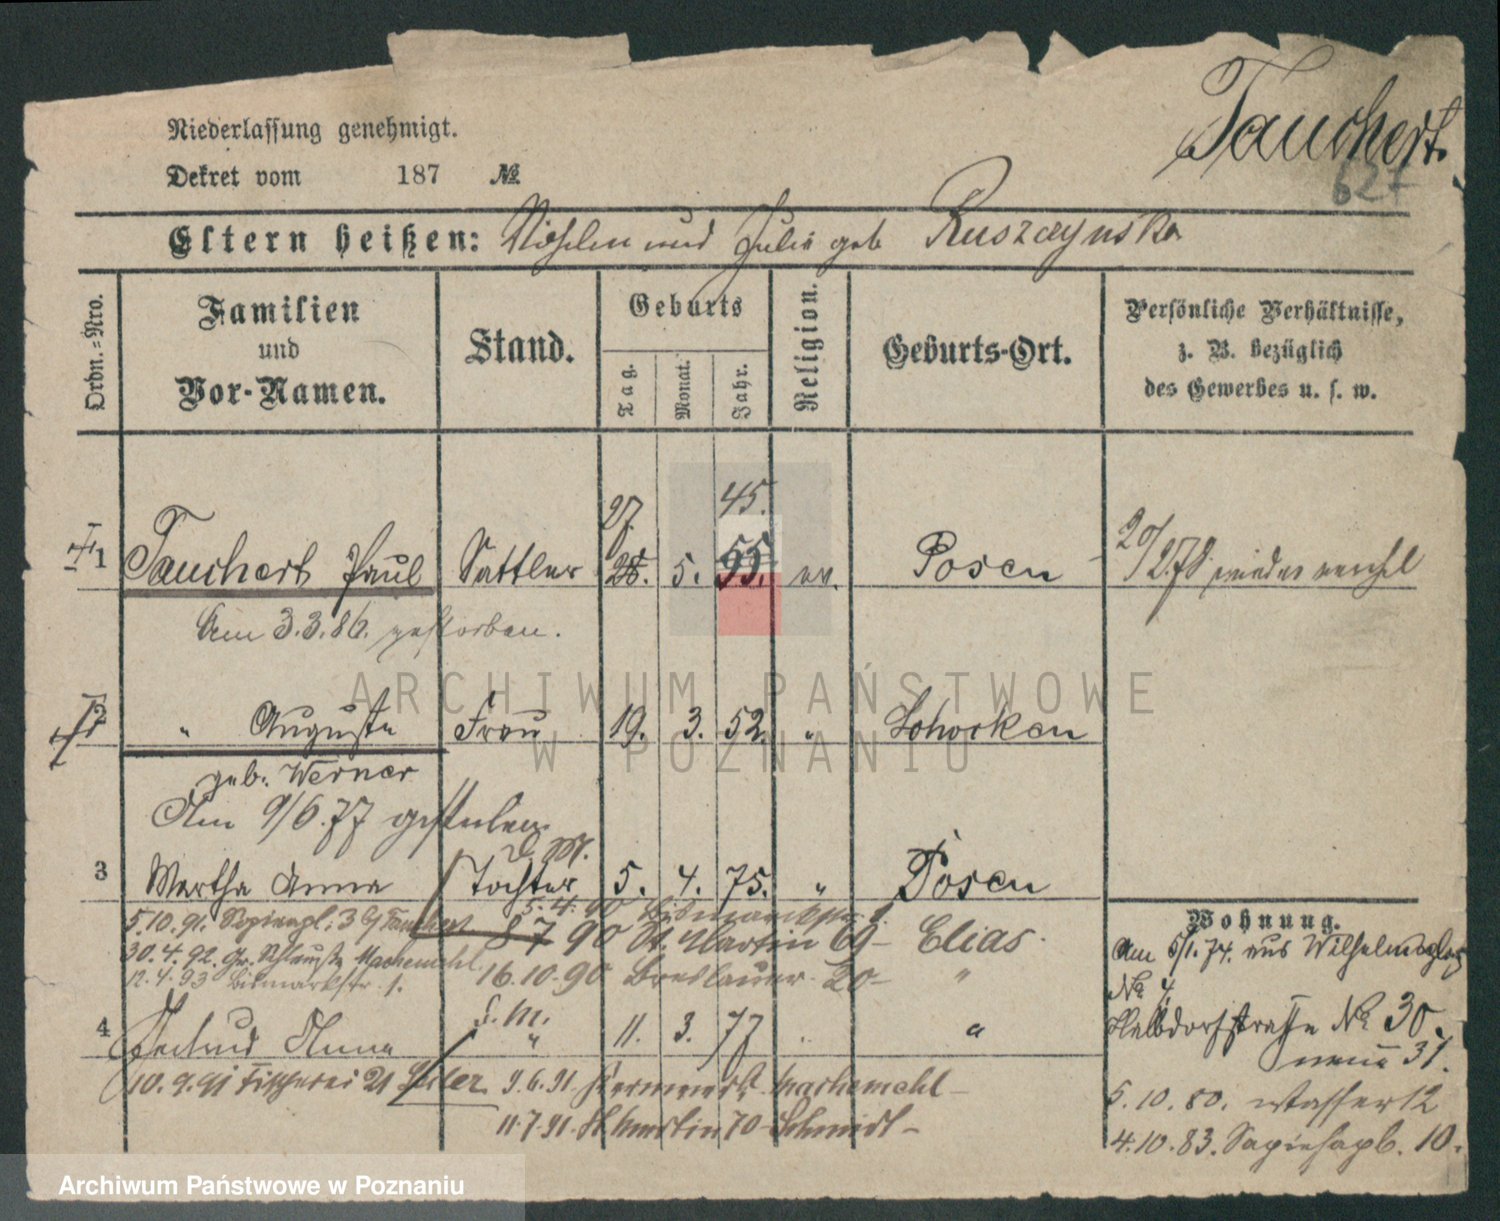 Tauchert.
627
Niederlassung genehmigt.
Dekret vom 187 №
Eltern heißen: und Julie geb Ruszczynska
Ordn.-Nro.
Familien und Vor-Namen.
Stand.
Geburts
Tag.
Monat.
Jahr.
Religion.
Geburts-Ort.
Persönliche Verhältnisse,
z. B. bezüglich
des Gewerbes u. s. w.
27. 45.
1 Tauchert Paul Sattler 28. 5. 55. ev. Posen 20/278
Am 3.3.86. gestorben.
2 " Auguste Frau 19. 3. 52. " Schocken
geb. Werner
Am 9/6.77 gestorben
3 Martha Anna Tochter 5. 4. 75. " Posen
5.4.90 Bismarckstr.
5.10.91. 3 Tauchert 8 7 90 St. Martin 69 – Elias
30.4.92. Gr.
12.4.93 Bismarkstr. 1. 16.10.90 Breslauer 20 – "
4 Gertrud Anna " 11. 3. 77 "
10.9.91 Fischerei 21 9.6.91.
11.7.91. St. Martin 70 – Schmidt –
Wohnung.
Am 5/1.74. aus Wilhelmsplatz
No 4.
Halbdorfstrasse No 30.
neue 31.
5.10.80. Wasser 12
4.10.83. Sapiehapl. 10.
ARCHIWUM PAŃSTWOWE
W POZNANIU
Archiwum Państwowe w Poznaniu